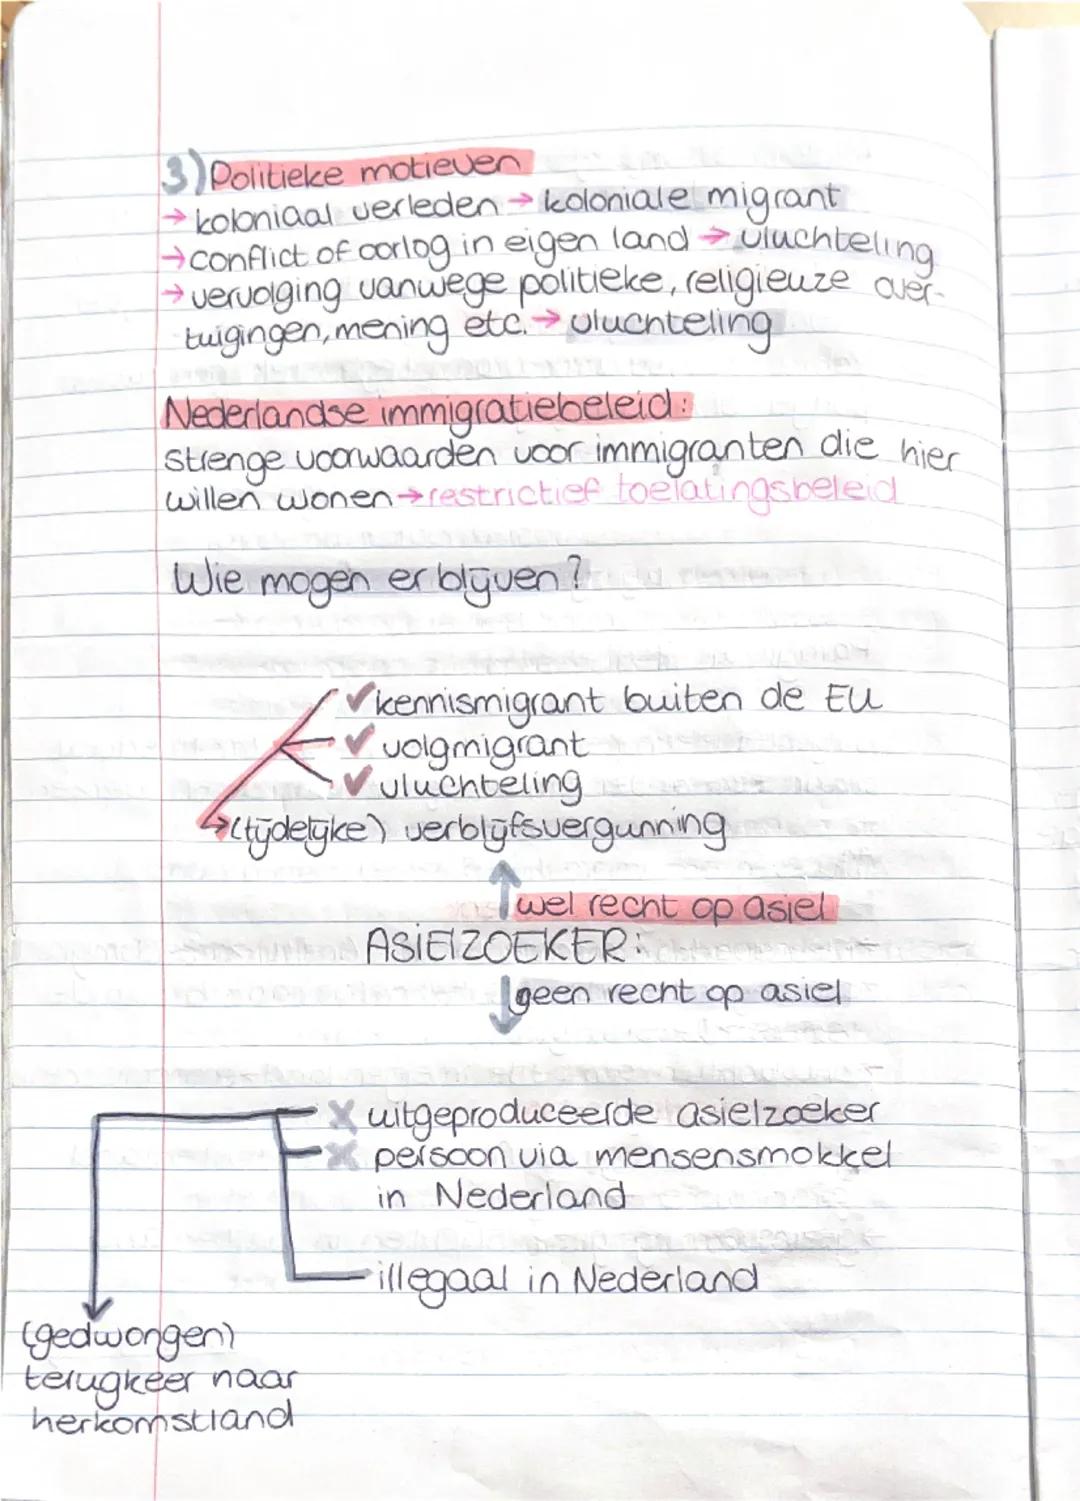 3) Politieke motieven
→ koloniaal verleden → koloniale migrant
→ conflict of oorlog in eigen land → vluchteling
→ vervolging vanwege politieke, religieuze over-
tuigingen, mening etc. → vluchteling
Nederlandse immigratiebeleid:
strenge voorwaarden voor immigranten die hier
willen wonen → restrictief toelatingsbeleid
Wie mogen er blijven?
✓ kennismigrant buiten de EU
✓ volgmigrant
✓ vluchteling
→ (tijdelijke) verblijfsvergunning
↑ wel recht op asiel
ASIELZOEKER:
↓ geen recht op asiel
X uitgeproduceerde asielzoeker
X persoon via mensensmokkel
in Nederland
illegaal in Nederland
(gedwongen)
terugkeer naar
herkomstland